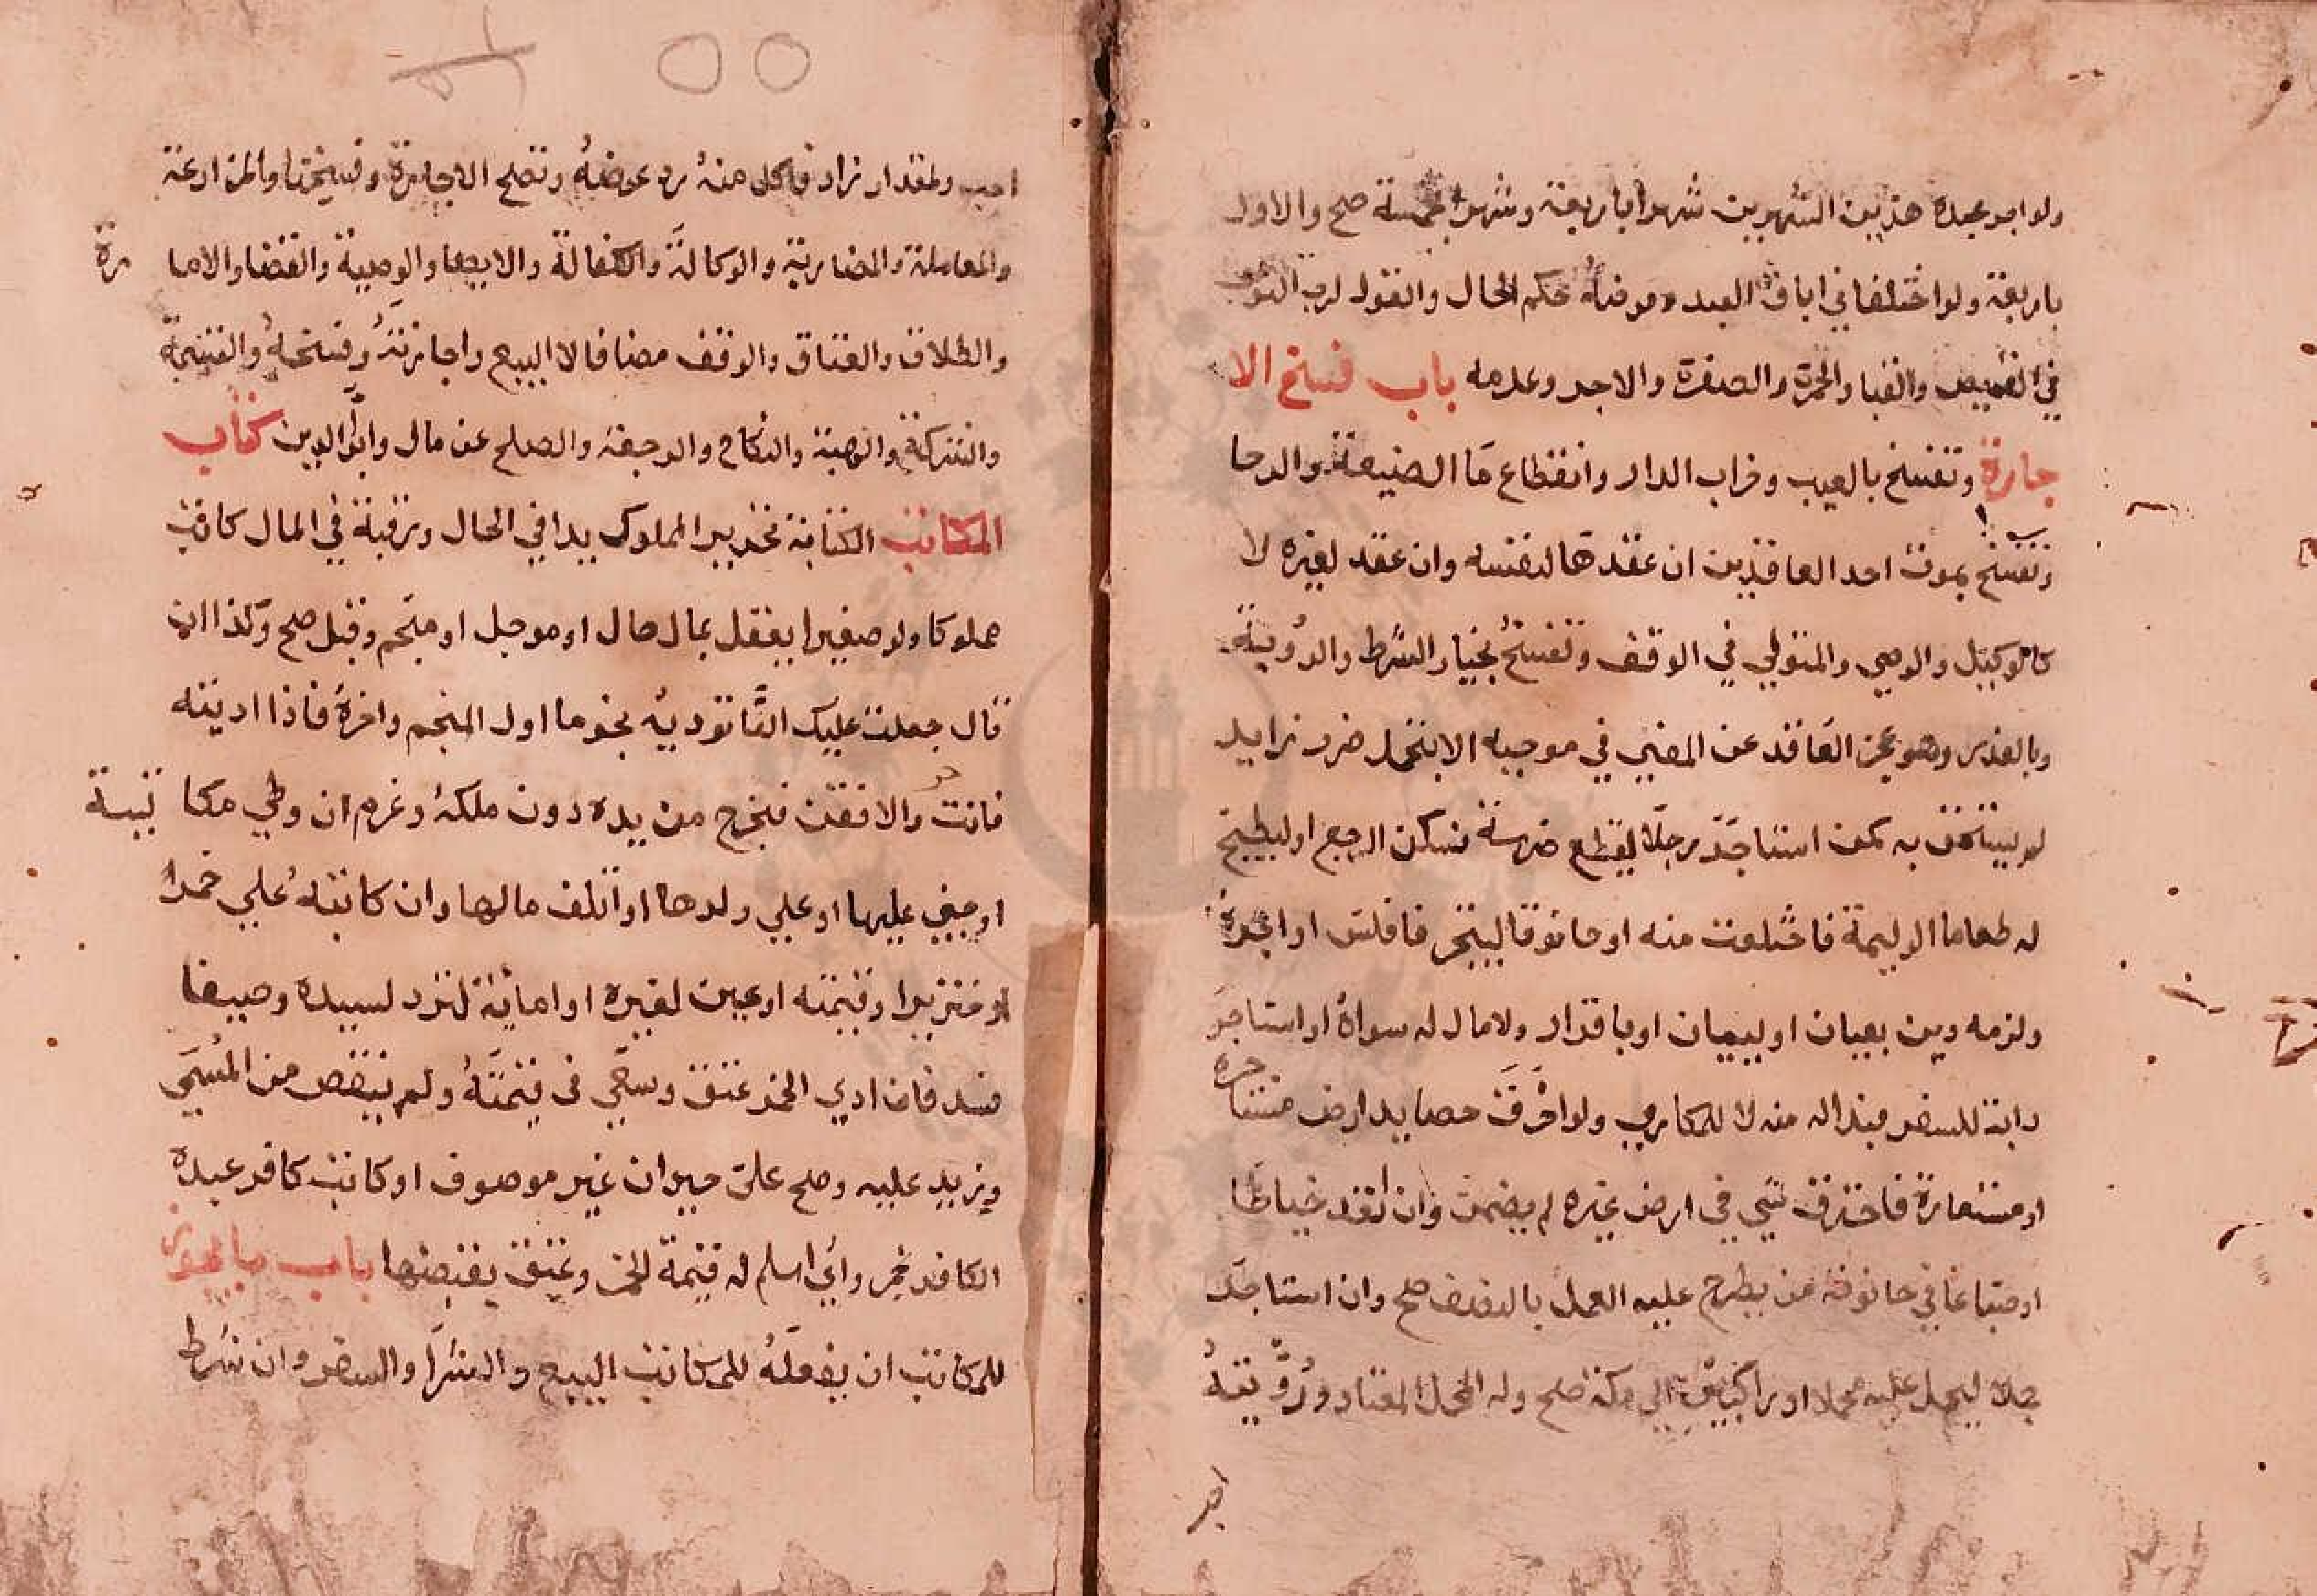 ولو اجر عبده هذين الشهرين شهرا باربعة وشهرا بخمسة صح والاول
باربعة ولو اختلفا في اباق العبد ومرضه حكم الحال والقول لرب الثوب
في القميص والقبا والحمرة والصفرة والاجر وعدمه باب فسخ الا
جارة وتفسخ بالعيب وخراب الدار وانقطاع ما الضيعة والرحا
وتفسخ بموت احد العاقدين ان عقدها لنفسه وان عقد لغيره لا
كالوكيل والوصي والمتولي في الوقف وتفسخ بخيار الشرط والروية
وبالعذر وهو عجز العاقد عن المضي في موجبه الا بتحمل ضرر زايد
لم يستحق به كمن استاجر رجلا ليقلع ضرسه فسكن الوجع او ليطبخ
له طعاما الوليمة فاختلعت منه او حانوتا ليتجر فافلس او اجره
ولزمه دين بعيان او ببيان او باقرار ولا مال له سواه او استاجر
دابة للسفر فبدا له منه لا للمكاري ولو احرق حصايد ارض مستاجره
او مستعارة فاحترق شي في ارض غيره لم يضمن وان اقعد خياطا
او صباغا في حانوته من يطرح عليه العمل بالنصف صح وان استاجر
جملا ليحمل عليه محملا او راكبين الى مكة صح وله المحمل المعتاد ورؤيته
احب
احب ولمقدار زاد فاكل منه رد عوضه وتصح الاجارة وفسخها والمزارعة
والمعاملة والمضاربة والوكالة والكفالة والايصا والوصية والقضا والاما رة
والطلاق والعتاق والوقف مضافا لا البيع واجازته وفسخه والقسمة
والشركة والهبة والنكاح والرجعة والصلح عن مال وابرا الدين كتاب
المكاتب الكتابة تحرير المملوك يدا في الحال ورقبة في المال كاتب
مملوكا ولو صغيرا يعقل بمال حال او موجل او منجم وقبل صح وكذا ان
قال جعلت عليك الفا توديه نجوما اول النجم واخره فاذا اديته
فانت حر والا فقن فيخرج من يده دون ملكه وغرم ان وطي مكا تبته
او جني عليها او علي ولدها او اتلف مالها وان كاتبه علي خمر
او خنزير او قيمته او عين لغيره او اماية ليرد لسيده وصيفا
فسد فان ادي الخمر عتق وسعي في قيمته ولم ينقص من المسمي
وزيد عليه وصح على حيوان غير موصوف او كاتب كافر عبده
الكافر بخمر واي اسلم له قيمة الخمر وعتق بقبضها باب ما يجوز
للمكاتب ان يفعله للمكاتب البيع والشرا والسفر وان شرط